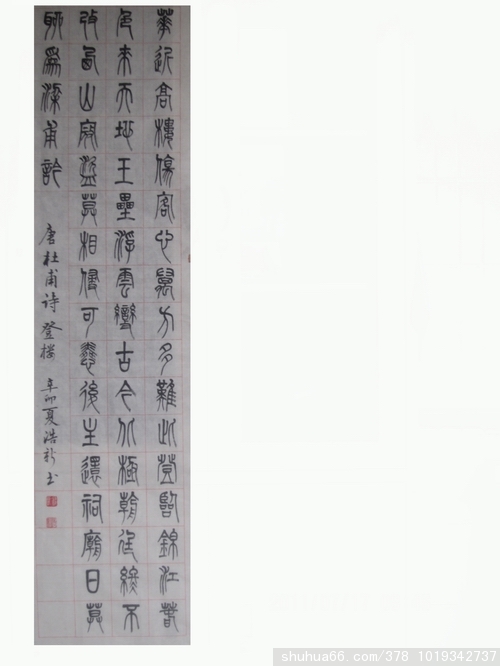 華近高樓傷客心萬方多難此登臨錦江春
色來天地王壘浮雲變古今北極朝廷終不
改西山寇盜莫相侵可憐後主還祠廟日莫
聊爲梁甫訡
唐杜甫诗登楼 辛卯夏浩书
shuhua66.com/378 1019342737